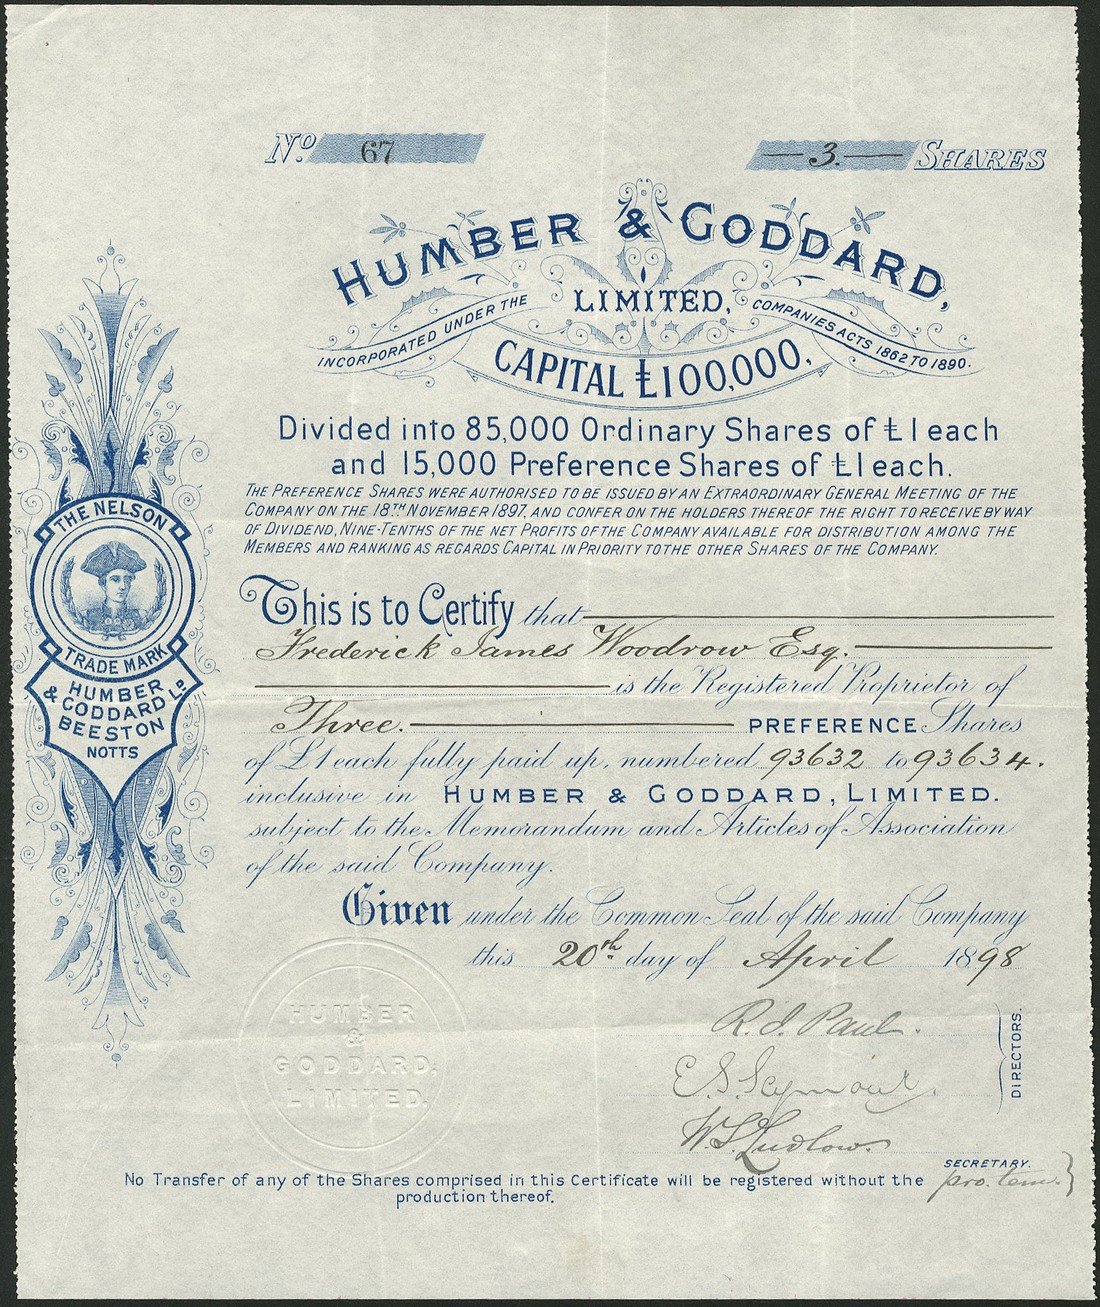 No. 67
—3.— SHARES
HUMBER & GODDARD,
LIMITED,
INCORPORATED UNDER THE COMPANIES ACTS 1862 TO 1890.
CAPITAL £100,000,
Divided into 85,000 Ordinary Shares of £1 each
and 15,000 Preference Shares of £1 each.
THE PREFERENCE SHARES WERE AUTHORISED TO BE ISSUED BY AN EXTRAORDINARY GENERAL MEETING OF THE
COMPANY ON THE 18TH NOVEMBER 1897, AND CONFER ON THE HOLDERS THEREOF THE RIGHT TO RECEIVE BY WAY
OF DIVIDEND, NINE-TENTHS OF THE NET PROFITS OF THE COMPANY AVAILABLE FOR DISTRIBUTION AMONG THE
MEMBERS AND RANKING AS REGARDS CAPITAL IN PRIORITY TO THE OTHER SHARES OF THE COMPANY.
THE NELSON
TRADE MARK
HUMBER
& GODDARD LD
BEESTON
NOTTS
This is to Certify that
Frederick James Woodrow Esq.
is the Registered Proprietor of
Three. PREFERENCE Shares
of £1 each fully paid up, numbered 93632 to 93634.
inclusive in HUMBER & GODDARD, LIMITED.
subject to the Memorandum and Articles of Association
of the said Company.
Given under the Common Seal of the said Company
this 20th day of April 1898
HUMBER
&
GODDARD,
LIMITED.
R.J. Paul.
E.S. Seymour.
DIRECTORS.
W.S. Ludlow.
SECRETARY.
pro. tem.
No Transfer of any of the Shares comprised in this Certificate will be registered without the
production thereof.